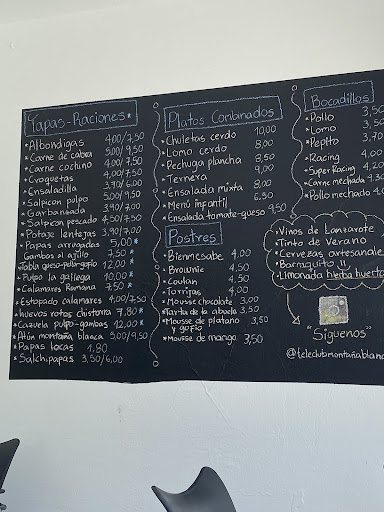 Tapas-Raciones*
*Albondigas 4,00/7,50
*Carne de cabra 5,00/9,50
*Carne cochino 4,00/7,50
*Croquetas 4,00/7,50
*Ensaladilla 3,70/6,00
*Salpicon pulpo 5,00/9,50
*Garbanzada 3,90/7,00
*Salpicon pescado 4,50/7,50
*Potaje lentejas 3,90/7,00
*Papas arrugadas 5,00*
Gambas al ajillo 7,50*
*Tabla queso-pella-gofio 12,00*
*Pulpo la gallega 10,00*
*Calamares Romana 7,50*
*Estopado calamares 4,00/7,50
*huevos rotos chistorra 7,80*
*Cazuela pulpo-gambas 12,00*
*Atún montaña blanca 5,00/9,50
*Papas locas 1,80
*Salchipapas 3,50/6,00
Platos Combinados
*Chuletas cerdo 10,00
*Lomo cerdo 8,00
*Pechuga plancha 8,50
*Ternera 9,00
*Ensalada mixta 8,00
*Menú infantil 6,30
*Ensalada tomate-queso 9,50
Postres
*Bienmesabe 4,00
*Brownie 4,50
*Coulan 4,50
*Torrijas 4,00
*Mousse chocolate 3,00
*Tarta de la abuela 3,50
*Mousse de platano 3,50
y gofio
*Mousse de mango 3,50
Bocadillos
*Pollo 3,50
*Lomo 3,50
*Pepito 3,70
*Racing 4,00
*Super Racing 4,20
*Carne mechada 4,30
*Pollo mechado 4,0
*Vinos de Lanzarote
*Tinto de Verano
*Cervezas artesanales
*Barraquito
*Limonada hierba huerto
"Síguenos"
@teleclubmontañablanc